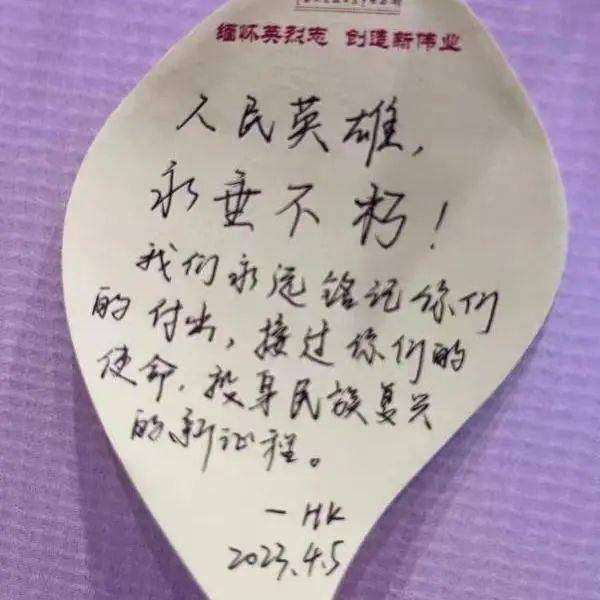 缅怀英烈志 创造新伟业
人民英雄,
永垂不朽!
我们永远铭记你们
的付出,接过你们的
使命,投身民族复兴
的新征程。
一HK
2023.4.5